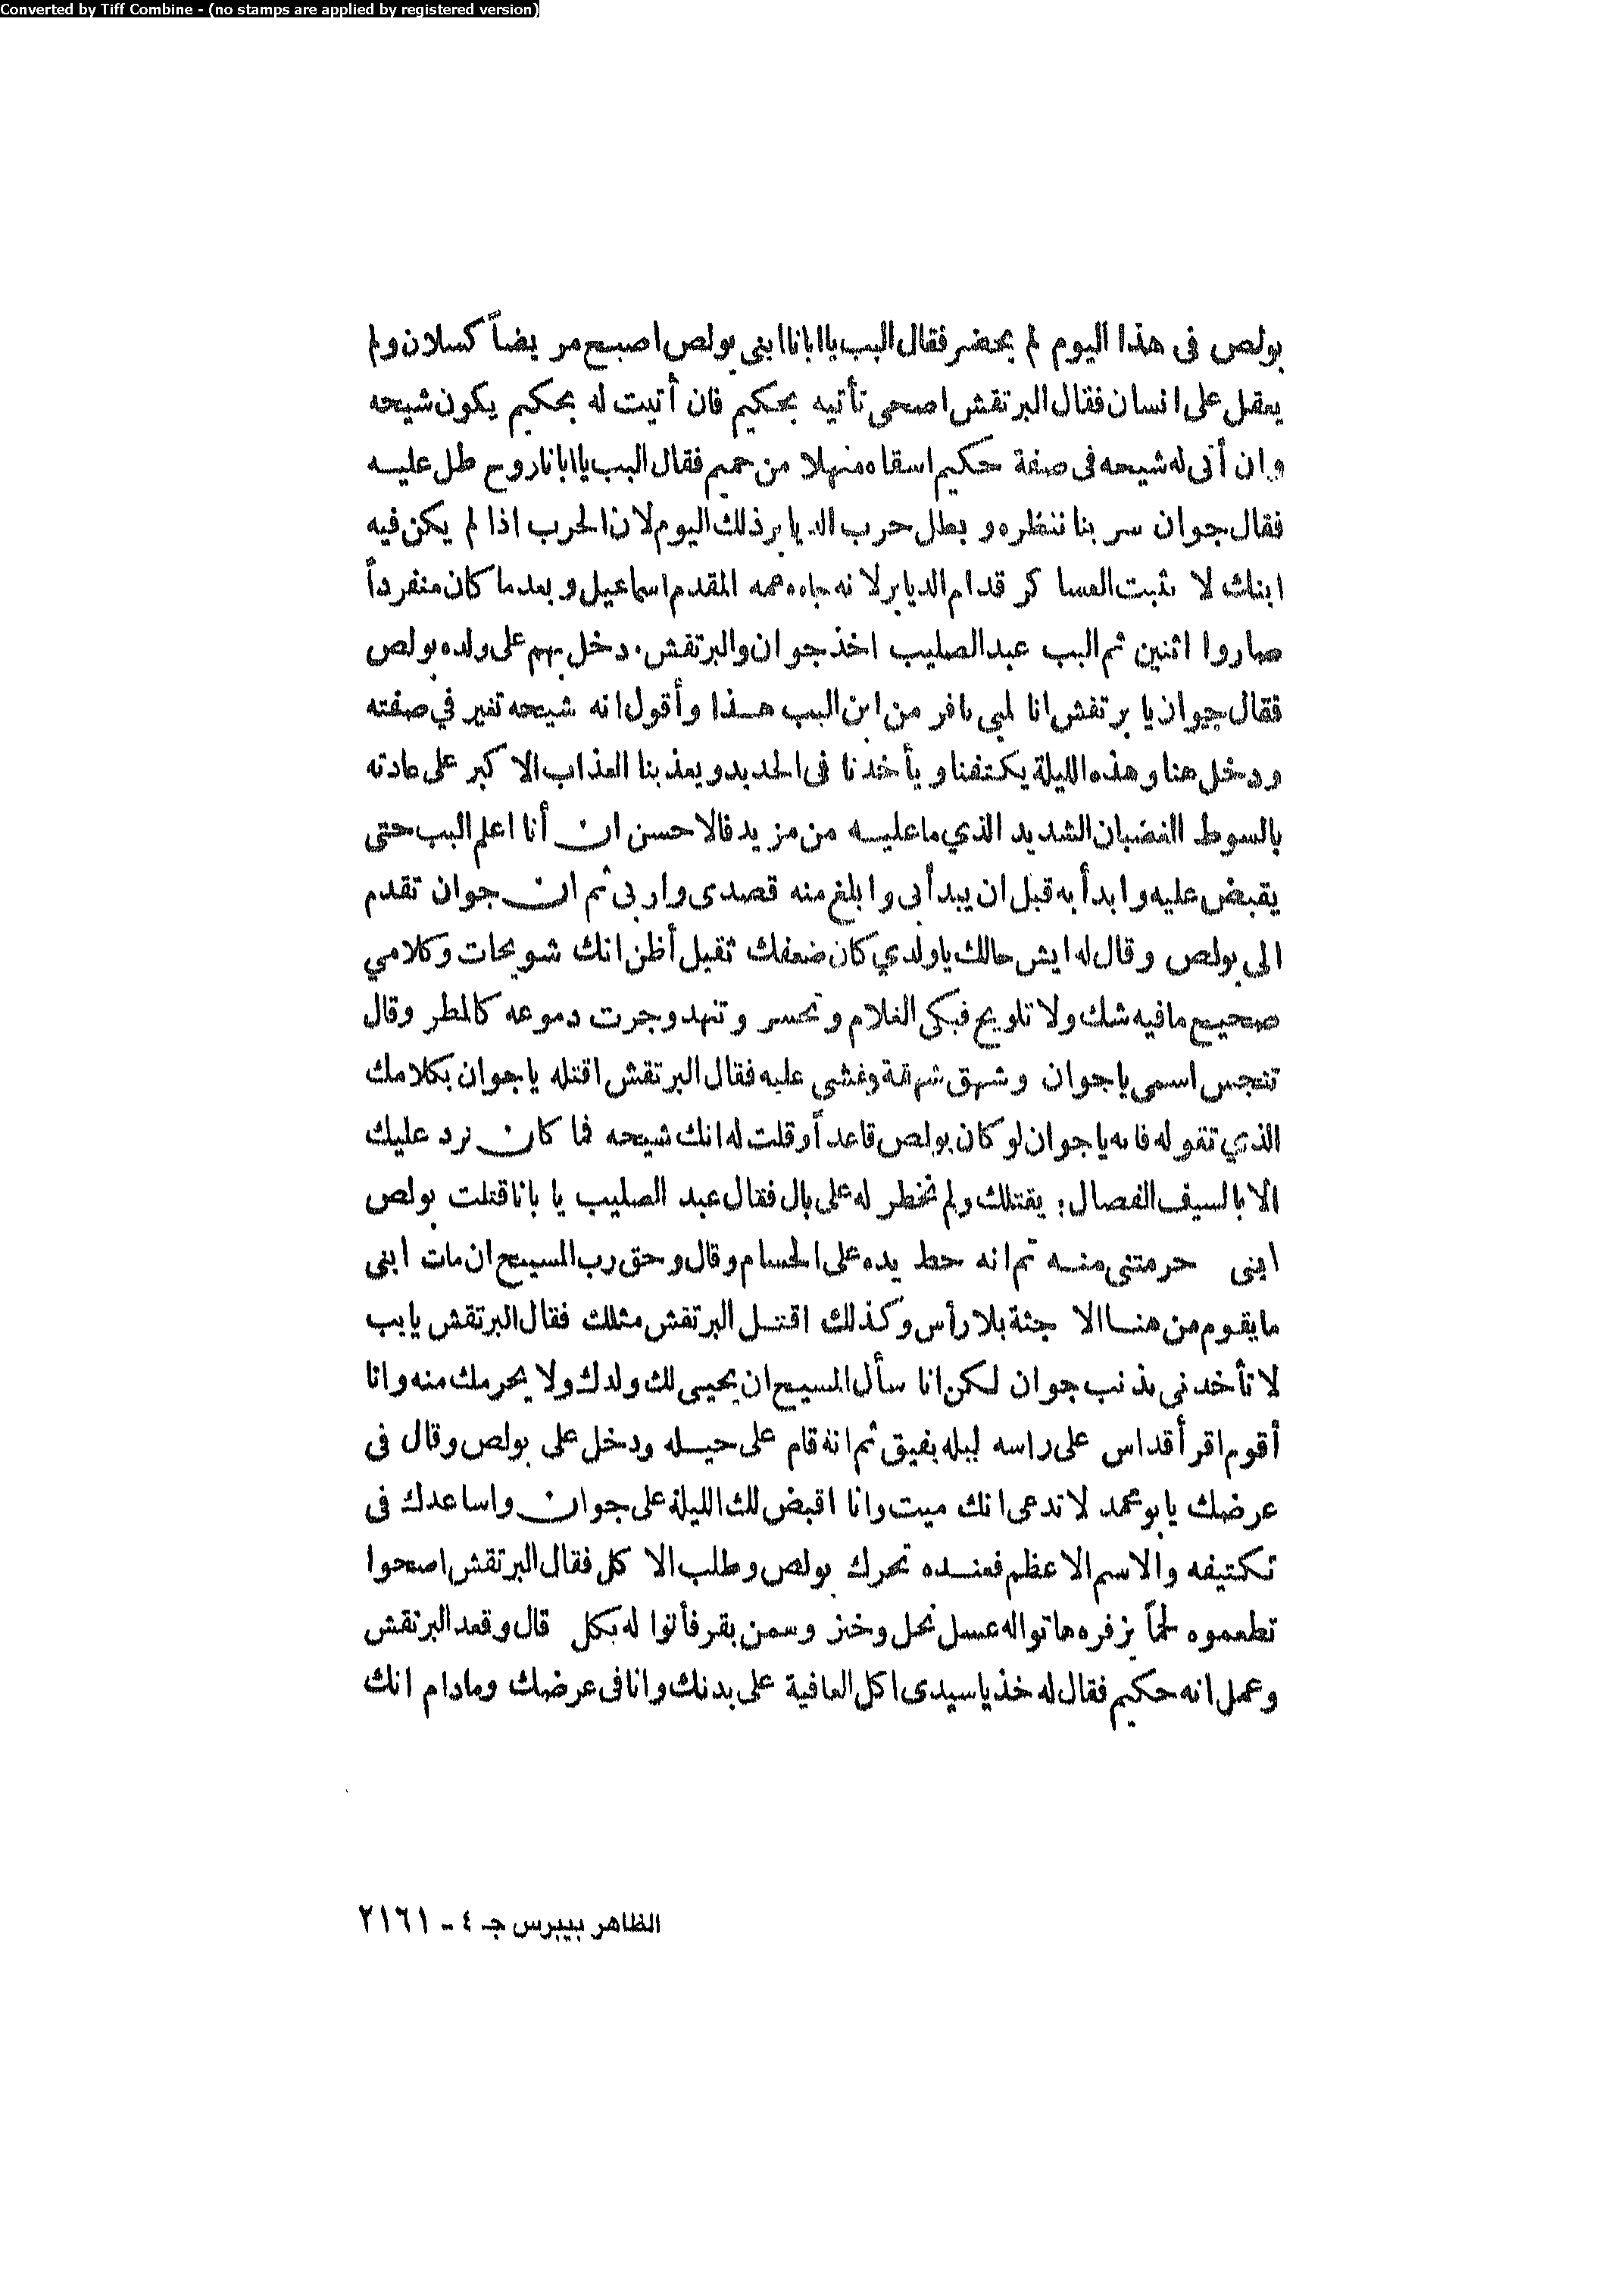 Converted by Tiff Combine - (no stamps are applied by registered version)
بولص فى هذا اليوم لم يحضر فقال البب يا ابانا ابنى بولص اصبح مريضاً كسلان ولم
يعقل على انسان فقال البرتقش اصحى تأتيه بحكيم فان أتيت له بحكيم يكون شيحه
وان أتى له شيحه فى صفة حكيم اسقاه منهلا من حميم فقال البب يا ابانا روح طل عليه
فقال جوان سر بنا ننظره و بطل حرب الديابر ذلك اليوم لان الحرب اذا لم يكن فيه
ابنك لا تثبت العساكر قدام الديابر لانه جاءه عمه المقدم اسماعيل وبعد ما كان منفرداً
صاروا اثنين ثم البب عبد الصليب اخذ جوان والبرتقش. دخل بهم على ولده بولص
فقال جوان يا برتقش انا لبى نافر من ابن البب هذا وأقول انه شيحه تغير في صفته
ودخل هنا وهذه الليلة يكتفنا ويأخذنا فى الحديد ويعذبنا العذاب الاكبر على عادته
بالسوط الغضبان الشديد الذي ما عليه من مزيد فالاحسن ان أنا اعلم البب حتى
يقبض عليه وابدأ به قبل ان يبدأنى وابلغ منه قصدى واربى ثم ان جوان تقدم
الى بولص وقال له ايش حالك يا ولدي كان ضعفك ثقيل أظن انك شويحات وكلامي
صحيح ما فيه شك ولا تلويح فبكى الغلام وتحسر وتنهد وجرت دموعه كالمطر وقال
تنجس اسمى يا جوان وشهق شهقة وغشى عليه فقال البرتقش اقتله يا جوان بكلامك
الذي تقوله فانه يا جوان لو كان بولص قاعداً وقلت له انك شيحه فما كان نرد عليك
الا بالسيف الفصال: يقتلك ولم تخطر له على بال فقال عبد الصليب يا بانا قتلت بولص
ابنى حرمتنى منه ثم انه حط يده على الحسام وقال وحق رب المسيح ان مات ابنى
ما يقوم من هنا الا جثة بلا رأس وكذلك اقتل البرتقش مثلك فقال البرتقش يا بب
لا تأخدنى بذنب جوان لكن انا سأل المسيح ان يحيى لك ولدك ولا يحرمك منه وانا
أقوم اقر أقداس على راسه ليله يفيق ثم انه قام على حيله ودخل على بولص وقال فى
عرضك يا بو محمد لا تدعى انك ميت وانا اقبض لك الليلة على جوان واساعدك فى
تكتيفه والاسم الاعظم فعنده تحرك بولص وطلب الاكل فقال البرتقش اصحوا
تطعموه لحماً بزفره هاتوا له عسل نحل وخبز وسمن بقر فأتوا له بكل قال وقعد البرتقش
وعمل انه حكيم فقال له خذ يا سيدى اكل العافية على بدنك وانا فى عرضك وما دام انك
الظاهر بيبرس جـ ٤ - ٢١٦١